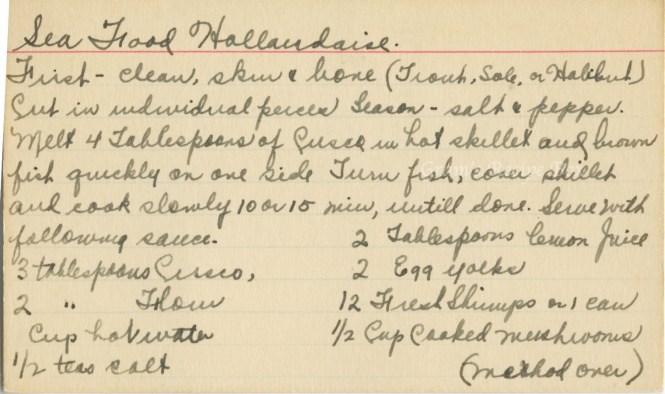 Sea Food Hollandaise.
First - clean, skin & bone (Trout, Sole, or Halibut)
Cut in individual pieces Season - salt & pepper.
Melt 4 Tablespoons of Crisco in hot skillet and brown
fish quickly on one side Turn fish, cover skillet
and cook slowly 10 or 15 min, untill done. Serve with
following sauce. 2 Tablespoons lemon Juice
3 tablespoons Crisco, 2 Egg yolks
2 " Flour 12 Fresh Shrimps or 1 can
Cup hot water 1/2 Cup Cooked mushrooms
1/2 teas salt (method over)